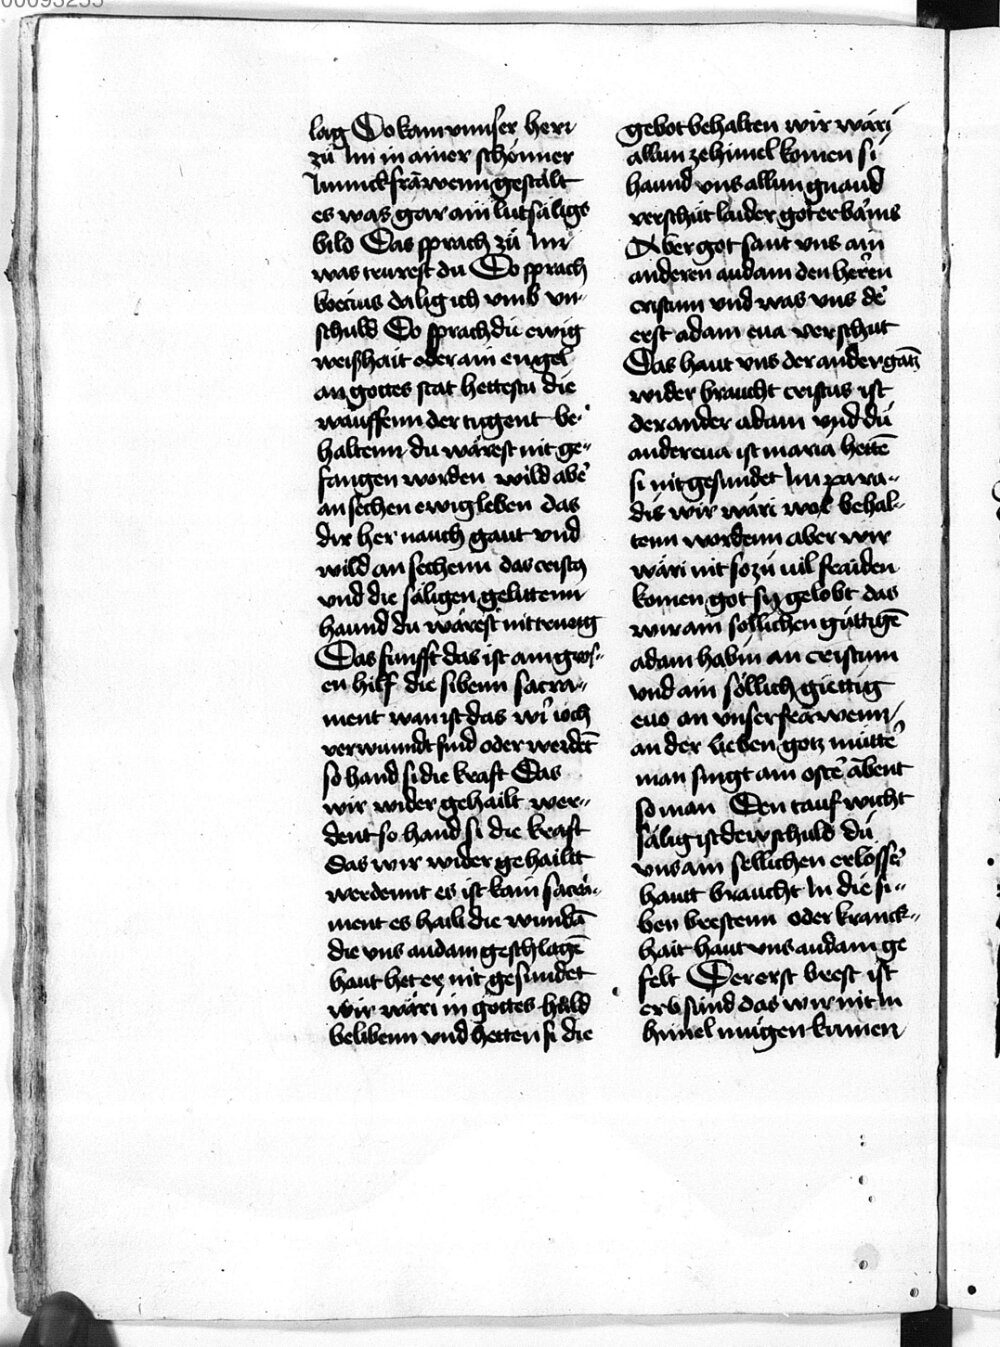 lag Do kam vnnser herr
zü Im in ainer schönner
Junnckfräwenn gestalt
es was gar ain lutsälige
bild Das sprach zü Im
was trurest du Do sprach
boecius da lig ich vmb vn-
schuld Do sprach dü ewig
weißhait oder ain engel
an gottes stat hettestu die
wauffenn der tugent be-
haltenn du wärest nit ge-
fangen worden wild abe͛
an sechen ewig leben das
dir her nauch gaut vnd
wild an sechenn das cristus
vnd die säligen gelittenn
haund du wärest nit trurig
Das funfft das ist ain gros-
en hilf die sibenn sacra-
ment wan ist das wir ioch
verwunndt sind oder werdet̄
so hand si die kraft Das
wir wider gehailt wer-
dent so hand si die kraft
das wir wider gehailtt
werdennt es ist kain sacra-
ment es haili die wundā
die vns audam geschlagē
haut het er nit gesundet
wir wäri in gottes huld
belibenn vnd hetten si die
gebot behalten wir wäri
allun ze himel komen si
haund vns allun gnaud
verschüt laider got erbarms
Aber got sant vns ain
anderen audam den heren
cristum vnd was vns de͛
erst adam eua verschut
Das haut vns der ander gātz
wider braucht cristus ist
der ander adam vnd dü
ander eua ist maria hettē
si nit gesundet Im para-
dis wir wäri wol behal-
tenn wordenn aber wir
wäri nit so zü uil fräuden
komen got sy gelobt das
wir ain sollichen güttigē
adam habin an cristum
vnd ain söllich giettig
euo an vnser frawenn
an der lieben gotz mütte͛
man singt am oste͛ äbent
so man Den tauf wicht
sälig ist der schuld dü
vns ain sellichen erlösse͛
hautt braucht In die si-
ben brestenn oder kranck-
hait haut vns audam ge
felt Der erst brest ist
erb sünd das wir nit in
himel mügen kumen